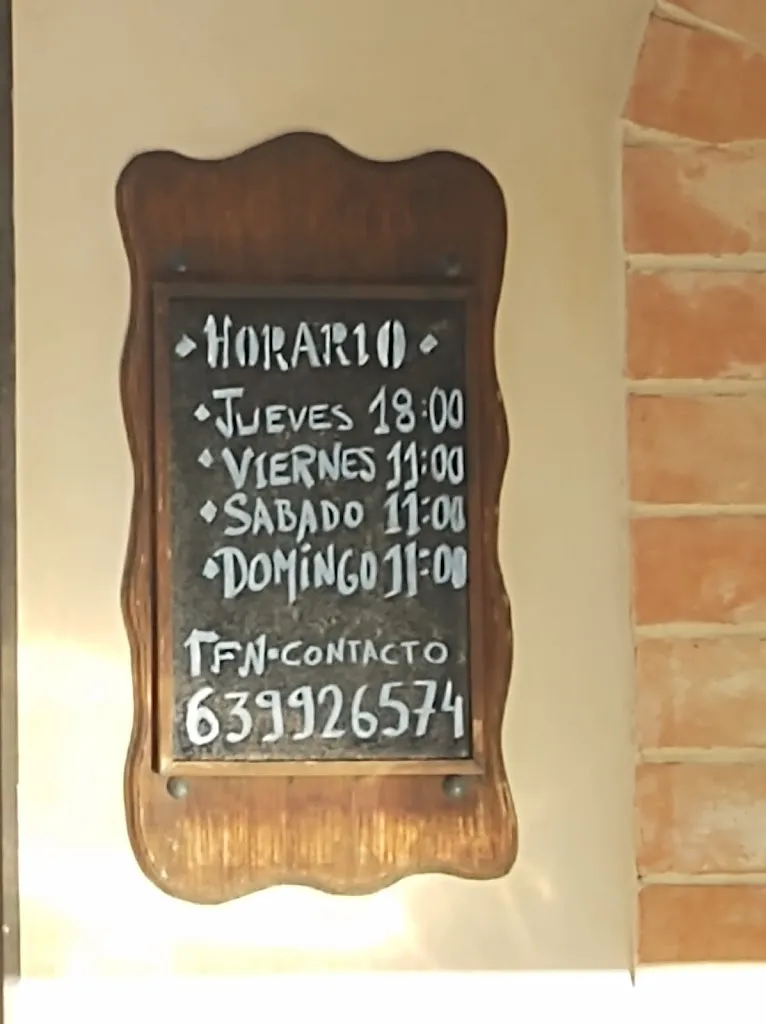 HORARIO
JUEVES 18:00
VIERNES 11:00
SABADO 11:00
DOMINGO 11:00
TFN·CONTACTO
639926574